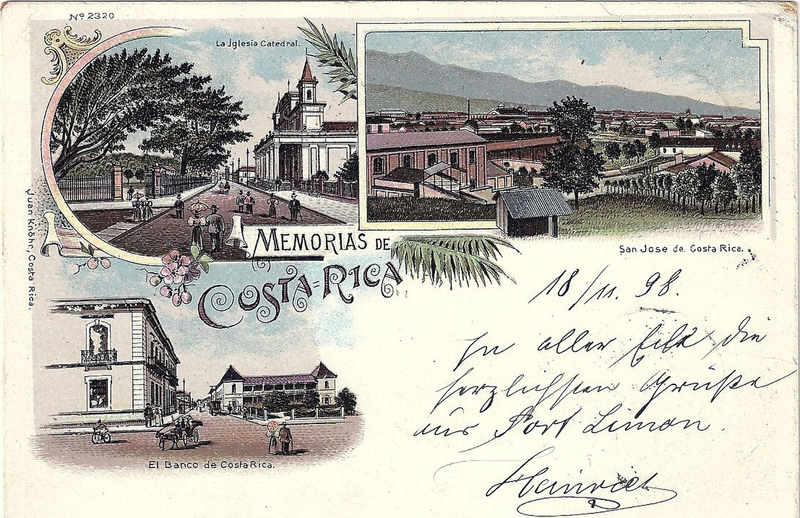 Nº 2320
La Iglesia Catedral.
MEMORIAS DE
COSTA=RICA
San Jose de Costa Rica.
Juan Knöhr, Costa Rica.
El Banco de Costa Rica.
18/11. 98.
In aller Eile die
herzlichsten Grüße
aus Port Limon.
Heinrich